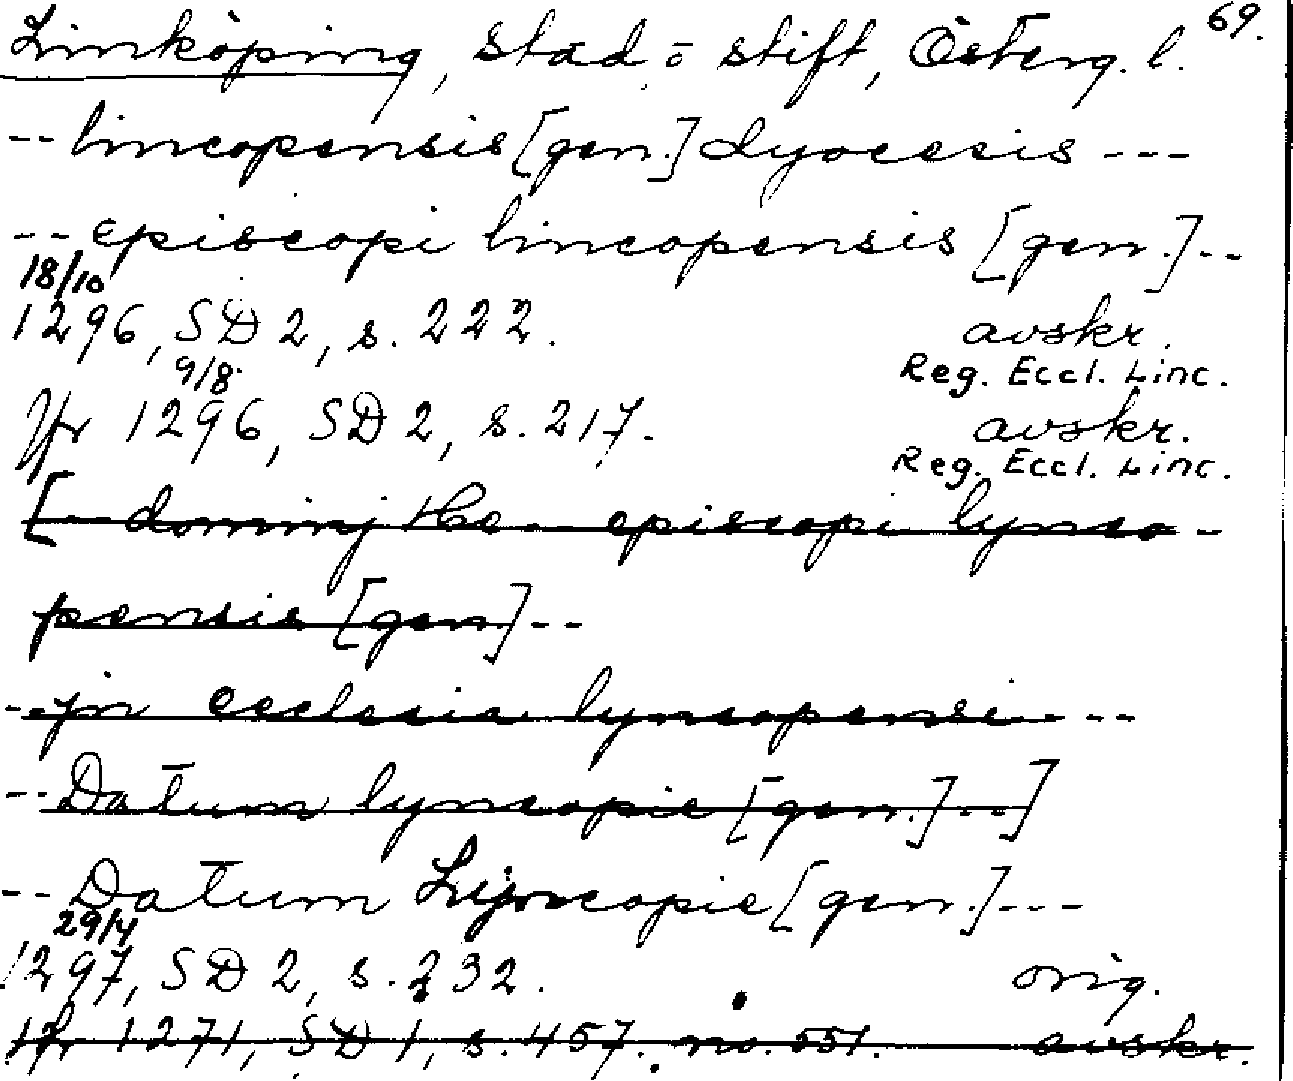 69.
Linköping, stad o stift, Österg. l.
-- lincopensis [gen.] dyocesis ---
-- episcopi lincopensis [gen.] --
18/10
1296, SD 2, s. 222. avskr.
Reg. Eccl. Linc.
9/8
Jfr 1296, SD 2, s. 217. avskr.
Reg. Eccl. Linc.
[-- dominj episcopi lynco-
pensis [gen] --
-- jn ecclesia lyncopensi ---
-- Datum lyncopie [gen.] --]
-- Datum Lyncopie [gen.] ---
29/4
1297, SD 2, s. 232. orig.
Jfr 1271, SD 1, s. 457. no. 551. avskr.